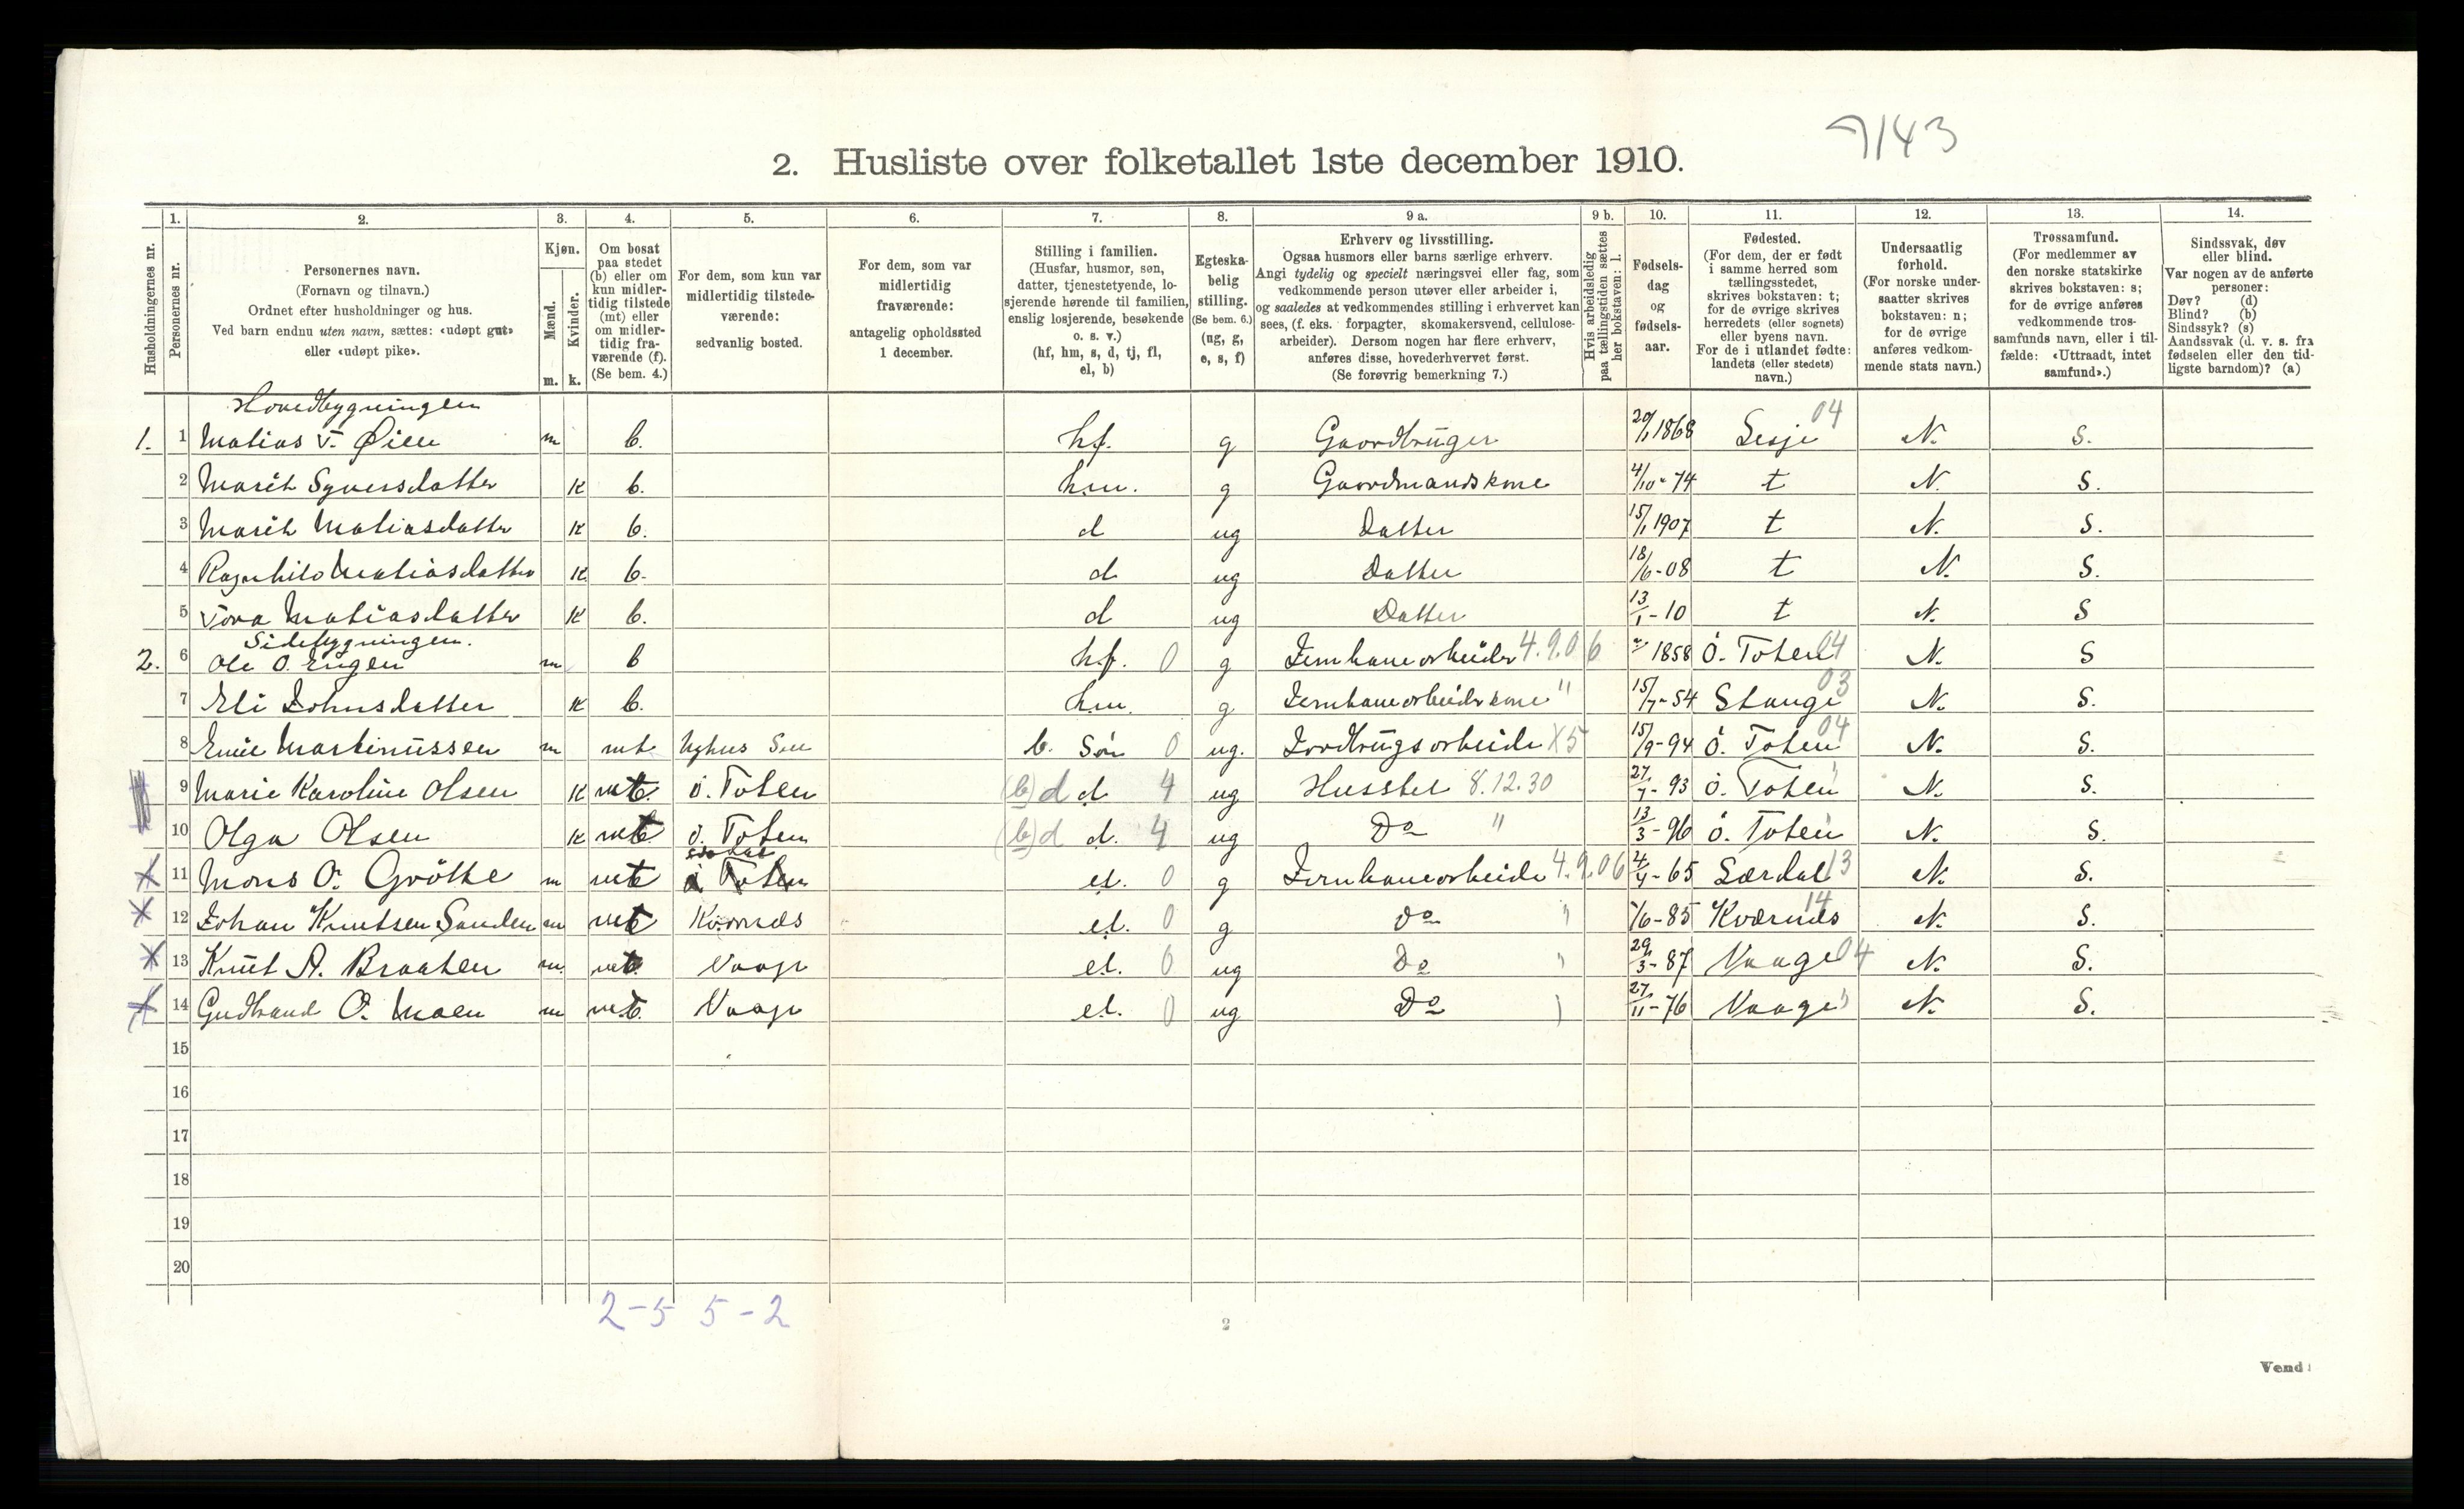 7143
2. Husliste over folketallet 1ste december 1910.
1. 2. 3. 4. 5. 6. 7. 8. 9 a. 9 b. 10. 11. 12. 13. 14.
Husholdningernes nr.
Personernes nr.
Personernes navn.
(Fornavn og tilnavn.)
Ordnet efter husholdninger og hus.
Ved barn endnu uten navn, sættes: «udøpt gut»
eller «udøpt pike».
Kjøn.
Mænd.
Kvinder.
m. k.
Om bosat
paa stedet
(b) eller om
kun midler-
tidig tilstede
(mt) eller
om midler-
tidig fra-
værende (f).
(Se bem. 4.)
For dem, som kun var
midlertidig tilstede-
værende:
sedvanlig bosted.
For dem, som var
midlertidig
fraværende:
antagelig opholdssted
1 december.
Stilling i familien.
(Husfar, husmor, søn,
datter, tjenestetyende, lo-
sjerende hørende til familien,
enslig losjerende, besøkende
o. s. v.)
(hf, hm, s, d, tj, fl,
el, b)
Egteska-
belig
stilling.
(Se bem. 6.)
(ug, g,
e, s, f)
Erhverv og livsstilling.
Ogsaa husmors eller barns særlige erhverv.
Angi tydelig og specielt næringsvei eller fag, som
vedkommende person utøver eller arbeider i,
og saaledes at vedkommendes stilling i erhvervet kan
sees, (f. eks. forpagter, skomakersvend, cellulose-
arbeider). Dersom nogen har flere erhverv,
anføres disse, hovederhvervet først.
(Se forøvrig bemerkning 7.)
Hvis arbeidsledig
paa tællingstiden sættes
her bokstaven: l.
Fødsels-
dag
og
fødsels-
aar.
Fødested.
(For dem, der er født
i samme herred som
tællingsstedet,
skrives bokstaven: t;
for de øvrige skrives
herredets (eller sognets)
eller byens navn.
For de i utlandet fødte:
landets (eller stedets)
navn.)
Undersaatlig
forhold.
(For norske under-
saatter skrives
bokstaven: n;
for de øvrige
anføres vedkom-
mende stats navn.)
Trossamfund.
(For medlemmer av
den norske statskirke
skrives bokstaven: s;
for de øvrige anføres
vedkommende tros-
samfunds navn, eller i til-
fælde: «Uttraadt, intet
samfund».)
Sindssvak, døv
eller blind.
Var nogen av de anførte
personer:
Døv? (d)
Blind? (b)
Sindssyk? (s)
Aandssvak (d. v. s. fra
fødselen eller den tid-
ligste barndom)? (a)
Hovedbygningen
1. 1 Matias T. Øien m b. hf. g Gaardbruger 20/1 1868 Lesje 04 N. S.
2 Marit Syversdatter k b. hm. g Gaardmandskone 4/10-74 t N. S.
3 Marit Matiasdatter k b. d ug Datter 15/1 1907 t N. S.
4 Ragnhild Matiasdatter k b. d ug Datter 18/6-08 t N. S.
5 Tora Matiasdatter k b. d ug Datter 13/1-10 t N. S
Sidebygningen.
2. 6 Ole O. Engen m b hf. 0 g Jernbanearbeider 4.9.06 1858 Ö. Toten 04 N. S
7 Eli Johnsdatter k b. hm. g Jernbanearbeiderkone " 15/7-54 Stange 03 N. S.
8 Emil Martinussen m mt Nyhus b. Søn 0 ug. Jordbrugsarbeide X5 15/9-94 Ö. Toten 04 N. S.
9 Marie Karoline Olsen k mt. Ö. Toten (b) d d 4 ug Husstel 8.12.30 27/7-93 Ö. Toten N. S.
10 Olga Olsen k mt. Ö. Toten (b) d d. 4 ug Do " 13/3-96 Ö. Toten N. S.
11 Mons O. Gröthe m mt Ö Toten el. 0 g Jernbanearbeide 4.9.06 4/4-65 Lærdal 13 N. S.
12 Johan Knutsen Sanden m mt Kværnes el. 0 g Do " 7/6-85 Kværnes 14 N. S.
13 Knut A. Braaten m. mt. Vaage el. 0 ug Do " 29/3-87 Vaage 04 N. S.
14 Gudbrand O. Moen m mt. Vaage el. 0 ug Do " 27/11-76 Vaage " N. S.
15
16
17
18
19
20
2-5 5-2
2
Vend!